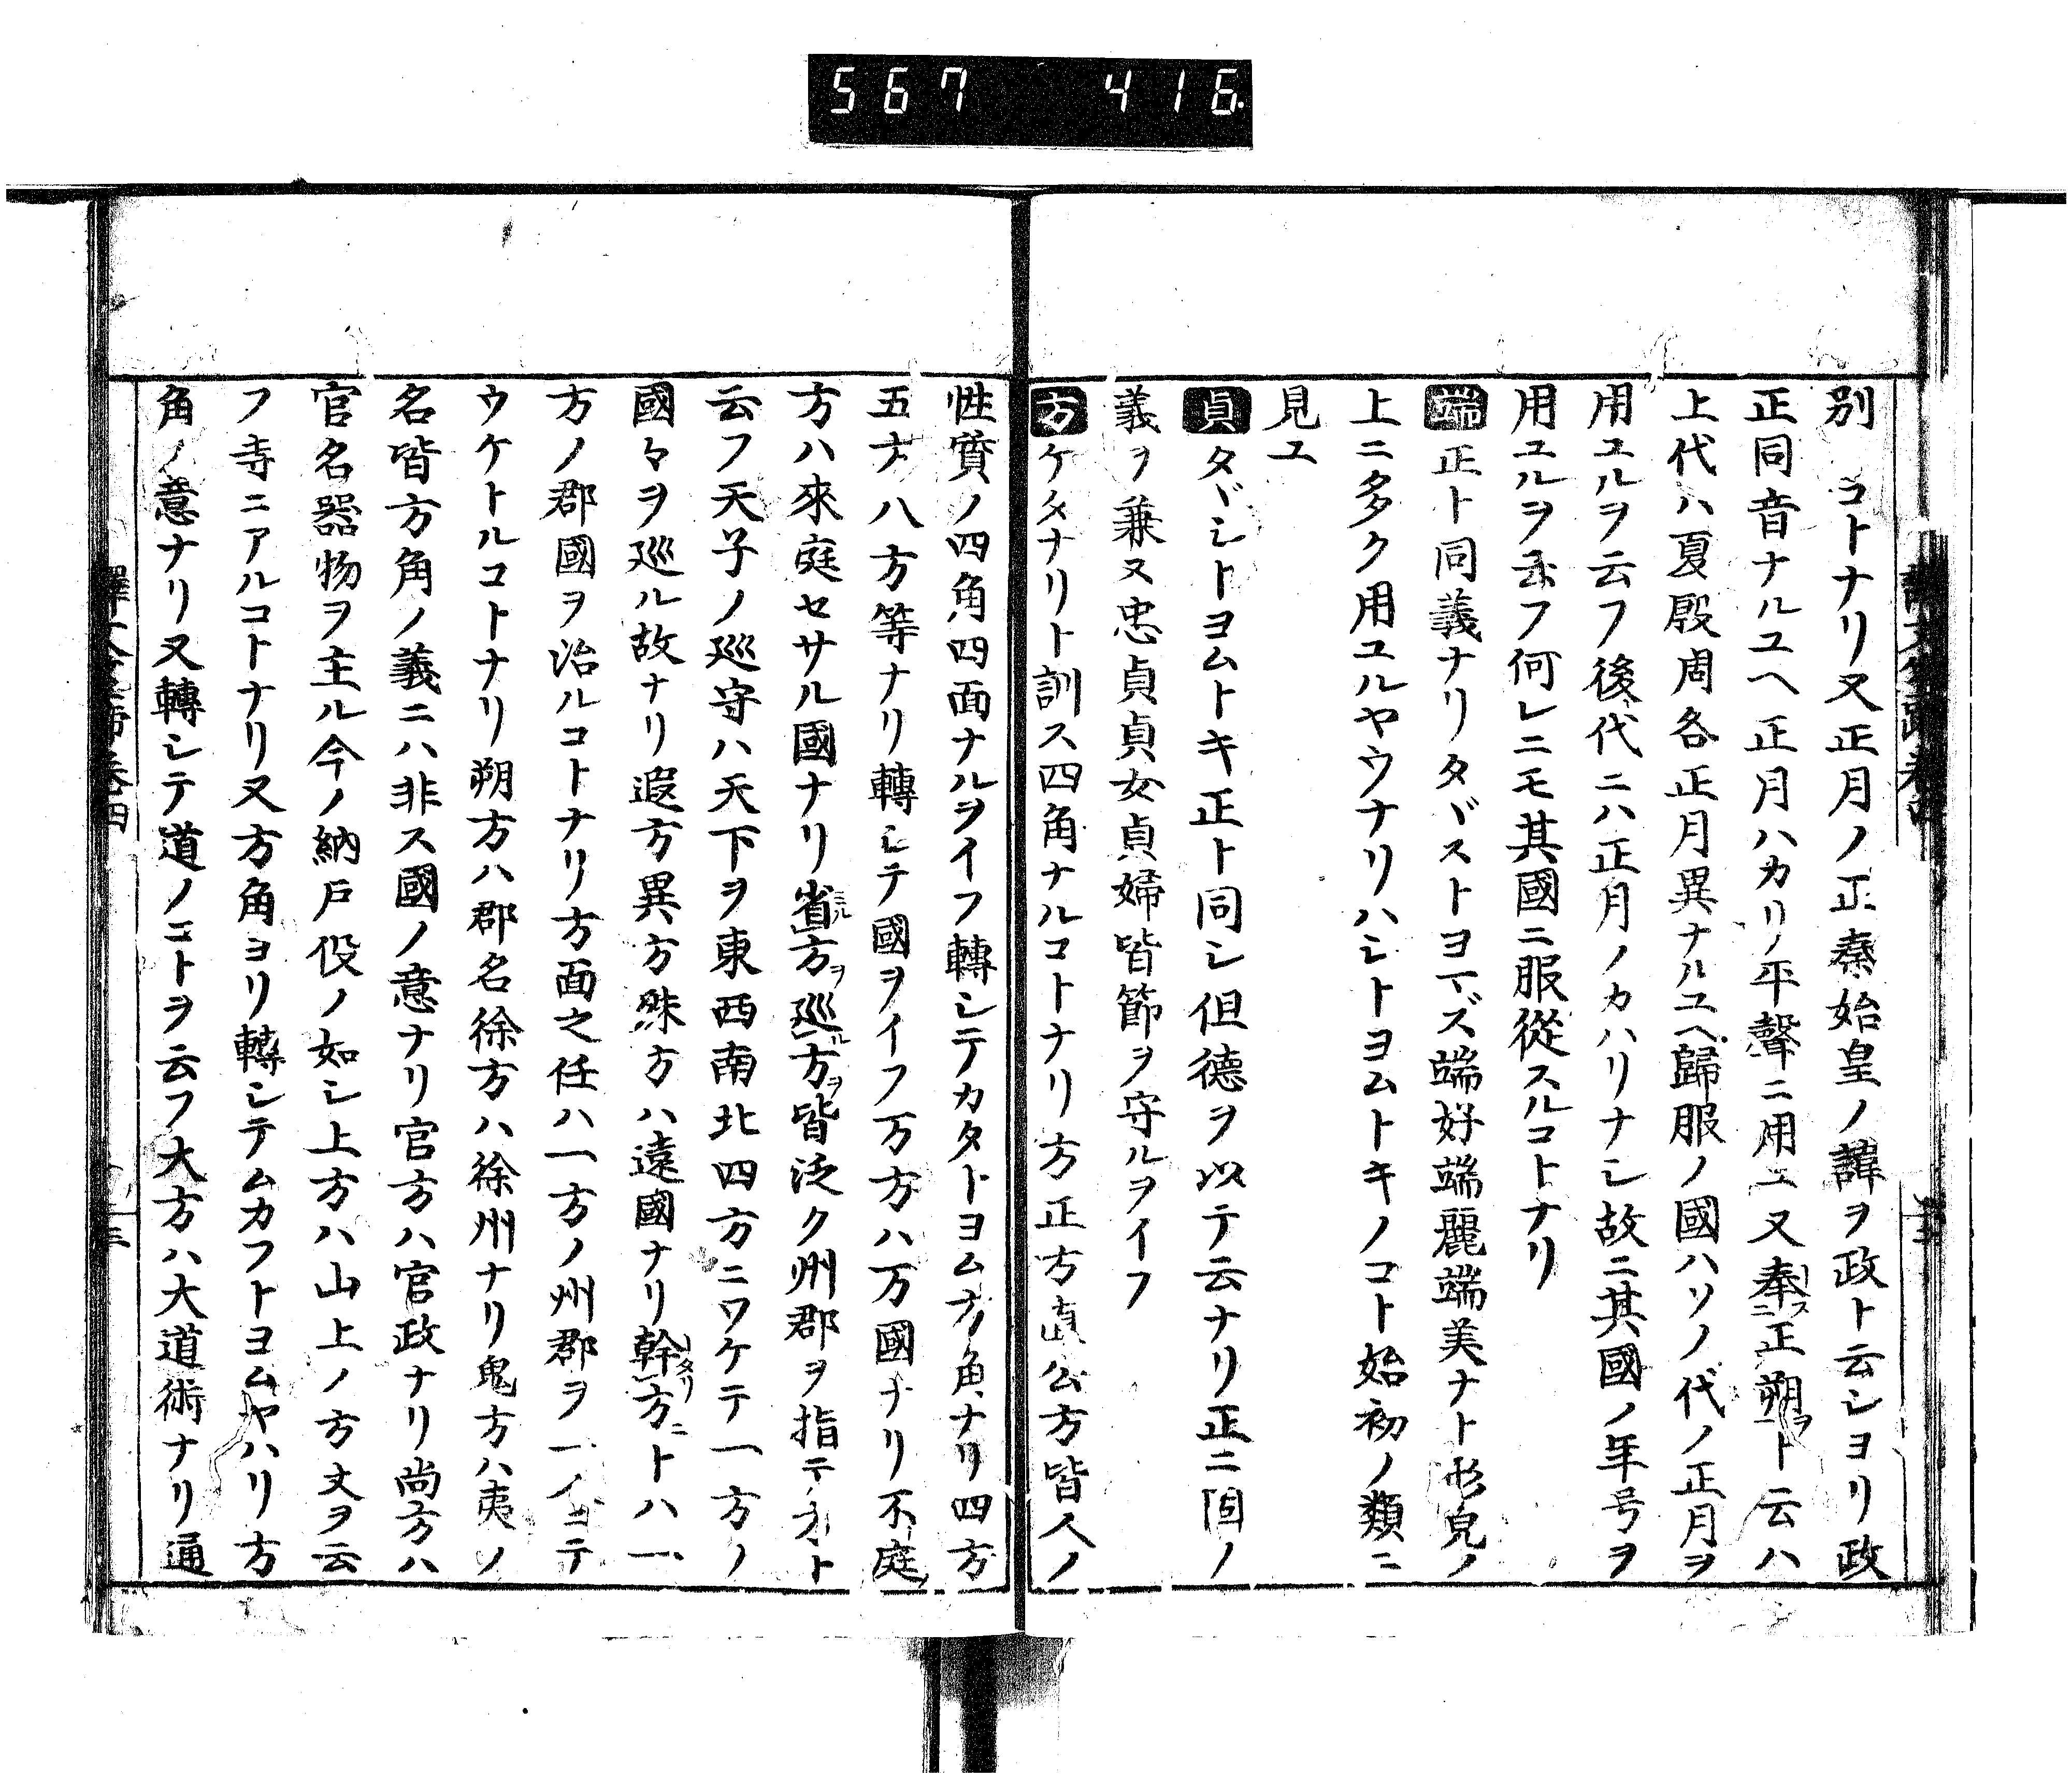 567 416
別コトナリ又正月ノ正秦始皇ノ諱ヲ政ト云シヨリ政
正同音ナルユヘ正月ハカリノ平聲ニ用ユ又奉スニ正朔ヲト云ハ
上代ハ夏殷周各正月異ナルユヘ歸服ノ國ハソノ代ノ正月ヲ
用ユルヲ云フ後代ニハ正月ノカハリナシ故ニ其國ノ年号ヲ
用ユルヲ云フ何レニモ其國ニ服從スルコトナリ
端正ト同義ナリタヾストヨマズ端好端麗端美ナト形皃ノ
上ニ多ク用ユルヤウナリハシトヨムトキノコト始初ノ類ニ
見ユ
貞タヾシトヨムトキ正ト同シ但德ヲ以テ云ナリ正ニ固ノ
義ヲ兼又忠貞貞女貞婦皆節ヲ守ルヲイフ
方ケタナリト訓ス四角ナルコトナリ方正方直公方皆人ノ
性質ノ四角四面ナルヲイフ轉シテカタトヨムナリ四方
五方八方等ナリ轉シテ國ヲイフ万方ハ万國ナリ不庭
方ハ來庭セサル國ナリ省ミル方ヲ巡ル方ヲ皆泛ク州郡ヲ指テ方ト
云フ天子ノ巡守ハ天下ヲ東西南北四方ニワケテ一方ノ
國々ヲ巡ル故ナリ遐方異方殊方ハ遠國ナリ幹タリ方ニトハ一
方ノ郡國ヲ治ルコトナリ方面之任ハ一方ノ州郡ヲ一イニテ
ウケトルコトナリ朔方ハ郡名徐方ハ徐州ナリ鬼方ハ夷ノ
名皆方角ノ義ニハ非ス國ノ意ナリ官方ハ官政ナリ尚方ハ
官名器物ヲ主ル今ノ納戸役ノ如シ上方ハ山上ノ方丈ヲ云
フ寺ニアルコトナリ又方角ヨリ轉シテムカフトヨムヤハリ方
角ノ意ナリ又轉シテ道ノコトヲ云フ大方ハ大道術ナリ通